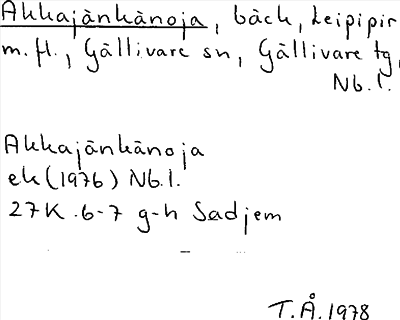 Akkajänkänoja, bäck, Leipipir
m.fl., Gällivare sn, Gällivare tg,
Nb.l.
Akkajänkänoja
ek (1976) Nb.l.
27K .6-7 g-h Sadjem
T.Å. 1978